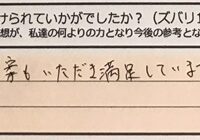 けられていかがでしたか？（ズバリ1
想が、私達の何よりの力となり今後の参考とな
寧もいただき満足していま